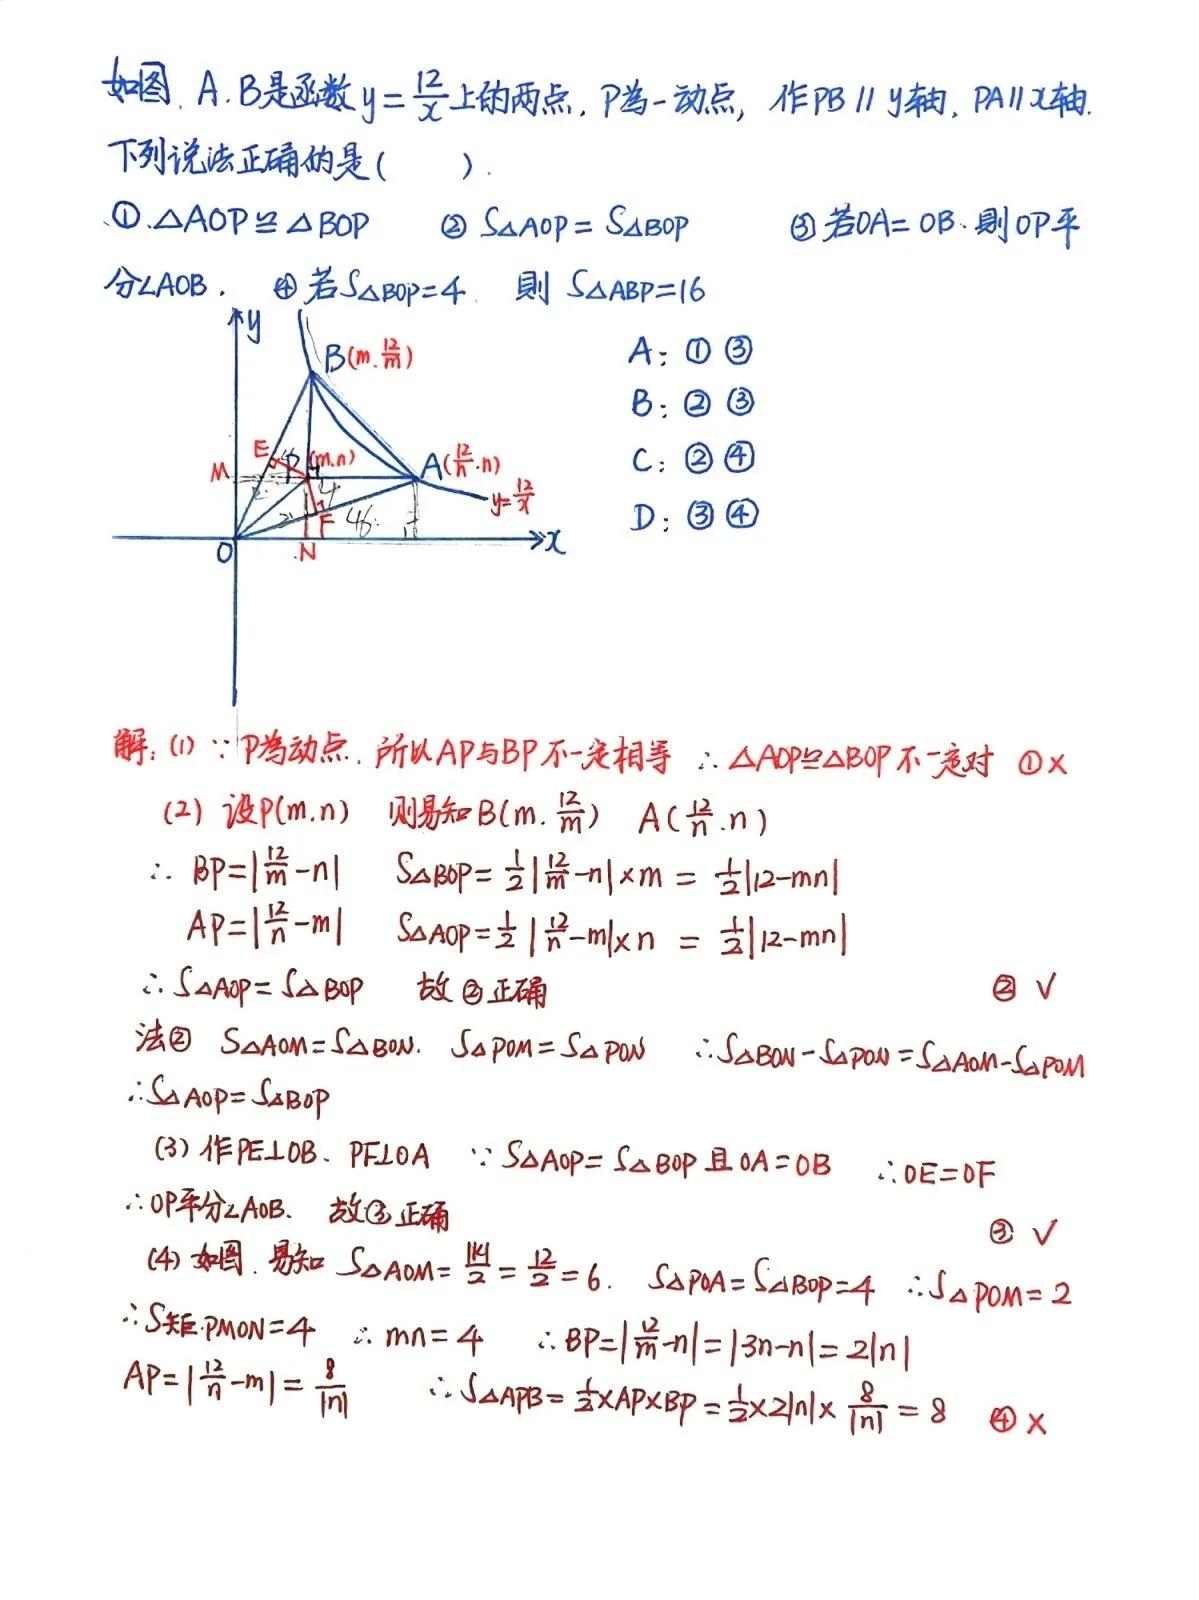 如图. A.B是函数y=12/x上的两点, P為一动点, 作PB∥y轴, PA∥x轴.
下列说法正确的是( ).
①.△AOP≌△BOP ② S△AOP=S△BOP ③若OA=OB.則OP平
分∠AOB. ④若S△BOP=4. 則 S△ABP=16
y
B(m.12/m)
A: ① ③
B: ② ③
E
P
(m.n)
M
A(12/n.n)
C: ② ④
y=12/x
F
D: ③ ④
O
N
x
解:(1) ∵P為动点.所以AP与BP不一定相等 ∴△AOP≌△BOP不一定对 ①×
(2) 设P(m.n) 则易知B(m.12/m) A(12/n.n)
∴ BP=|12/m-n| S△BOP=1/2|12/m-n|×m = 1/2|12-mn|
AP=|12/n-m| S△AOP=1/2|12/n-m|×n = 1/2|12-mn|
∴S△AOP=S△BOP 故②正确 ② √
法② S△AOM=S△BON. S△POM=S△PON ∴S△BON-S△PON=S△AOM-S△POM
∴S△AOP=S△BOP
(3) 作PE⊥OB、PF⊥OA ∵S△AOP=S△BOP且OA=OB ∴OE=OF
∴OP平分∠AOB. 故③正确 ③ √
(4) 如图.易知 S△AOM=|K|/2=12/2=6. S△POA=S△BOP=4 ∴S△POM=2
∴S矩PMON=4 ∴mn=4 ∴BP=|12/m-n|=|3n-n|=2|n|
AP=|12/n-m|=8/|n| ∴S△APB=1/2×AP×BP=1/2×2|n|×8/|n|=8 ④×